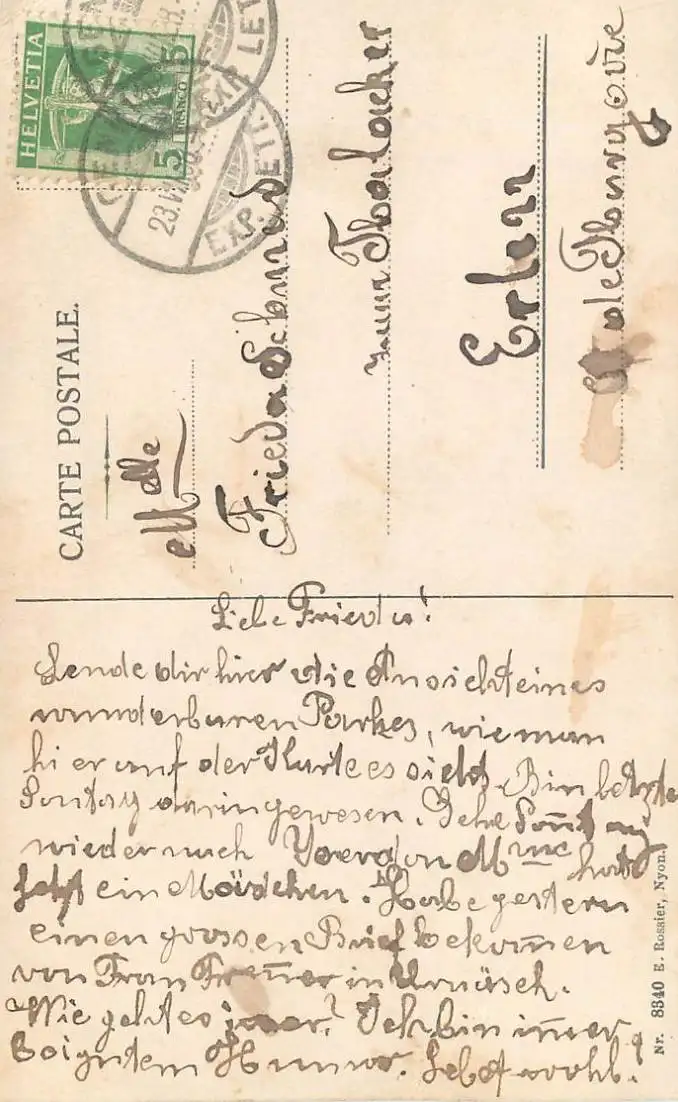 CARTE POSTALE.
HELVETIA
5 FRANCO 5
EXP. LETT.
23.VI
Mdelle
Frieda Schmid
zum Thalacker
Erlen
Ct de Thurgovie
Liebe Frieda!
Sende dir hier die Ansicht eines
wunderbaren Parkes, wie man
hier auf der Karte es sieht. Bin letzte
Sontag darin gewesen. Gehe Sonntag
wieder nach Yverdon Mme hat
jetzt ein Mädchen. Habe gestern
einen grossen Brief bekom̄en
von Frau in Urnäsch.
Wie geht es ? Ich bin im̄er
bei gutem Humor. Lebt wohl!
Nr. 8340 E. Rossier, Nyon.